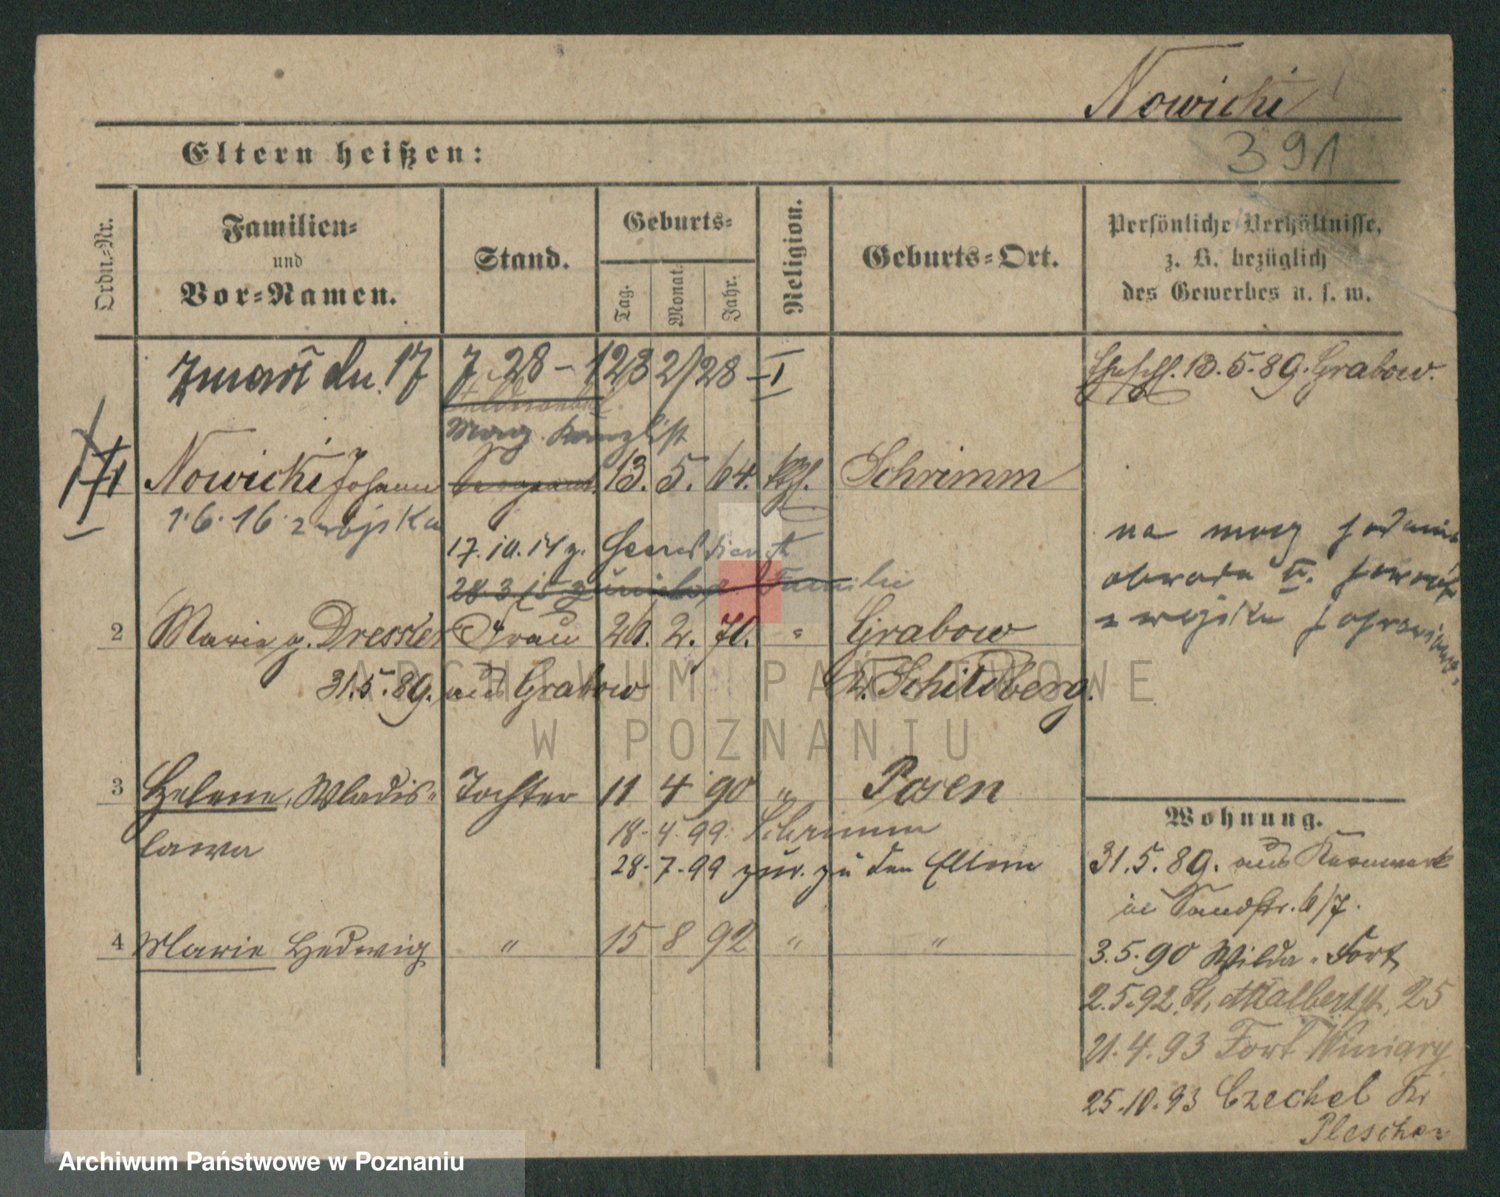 Nowicki
391
Eltern heißen:
Ordn.-Nr.
Familien-
und
Vor-Namen.
Stand.
Geburts-
Tag.
Monat.
Jahr.
Religion.
Geburts-Ort.
Persönliche Verhältnisse,
z. B. bezüglich
des Gewerbes u. s. w.
Zmarł dn. 17 7. 28 - 1232/28 - I
13.5.89. Grabow.
Mag. Kanzlist
1 Nowicki Johann 13. 5. 64. kth. Schrimm
1.6.16 z wojska
17.10.14 z. Heeresdienst
28.3.15 Familie
na
2 Marie g. Dressler Frau 2. 70. " Grabow
31.5.89. aus Grabow Kr. Schildberg.
3 Helene, Wladis- Tochter 11 4 90 " Posen
lawa
18.4.99. Schrimm
28.7.99 zur. zu den Eltern
4 Marie Hedwig " 15 8 92 " "
Wohnung.
31.5.89. aus
in Sandstr. 6/7.
3.5.90 Wilda. Fort
2.5.92. St. Adalbertst. 25
21.4.93 Fort Winiary
25.10.93 Czechel Kr
Pleschen
ARCHIWUM PAŃSTWOWE
W POZNANIU
Archiwum Państwowe w Poznaniu